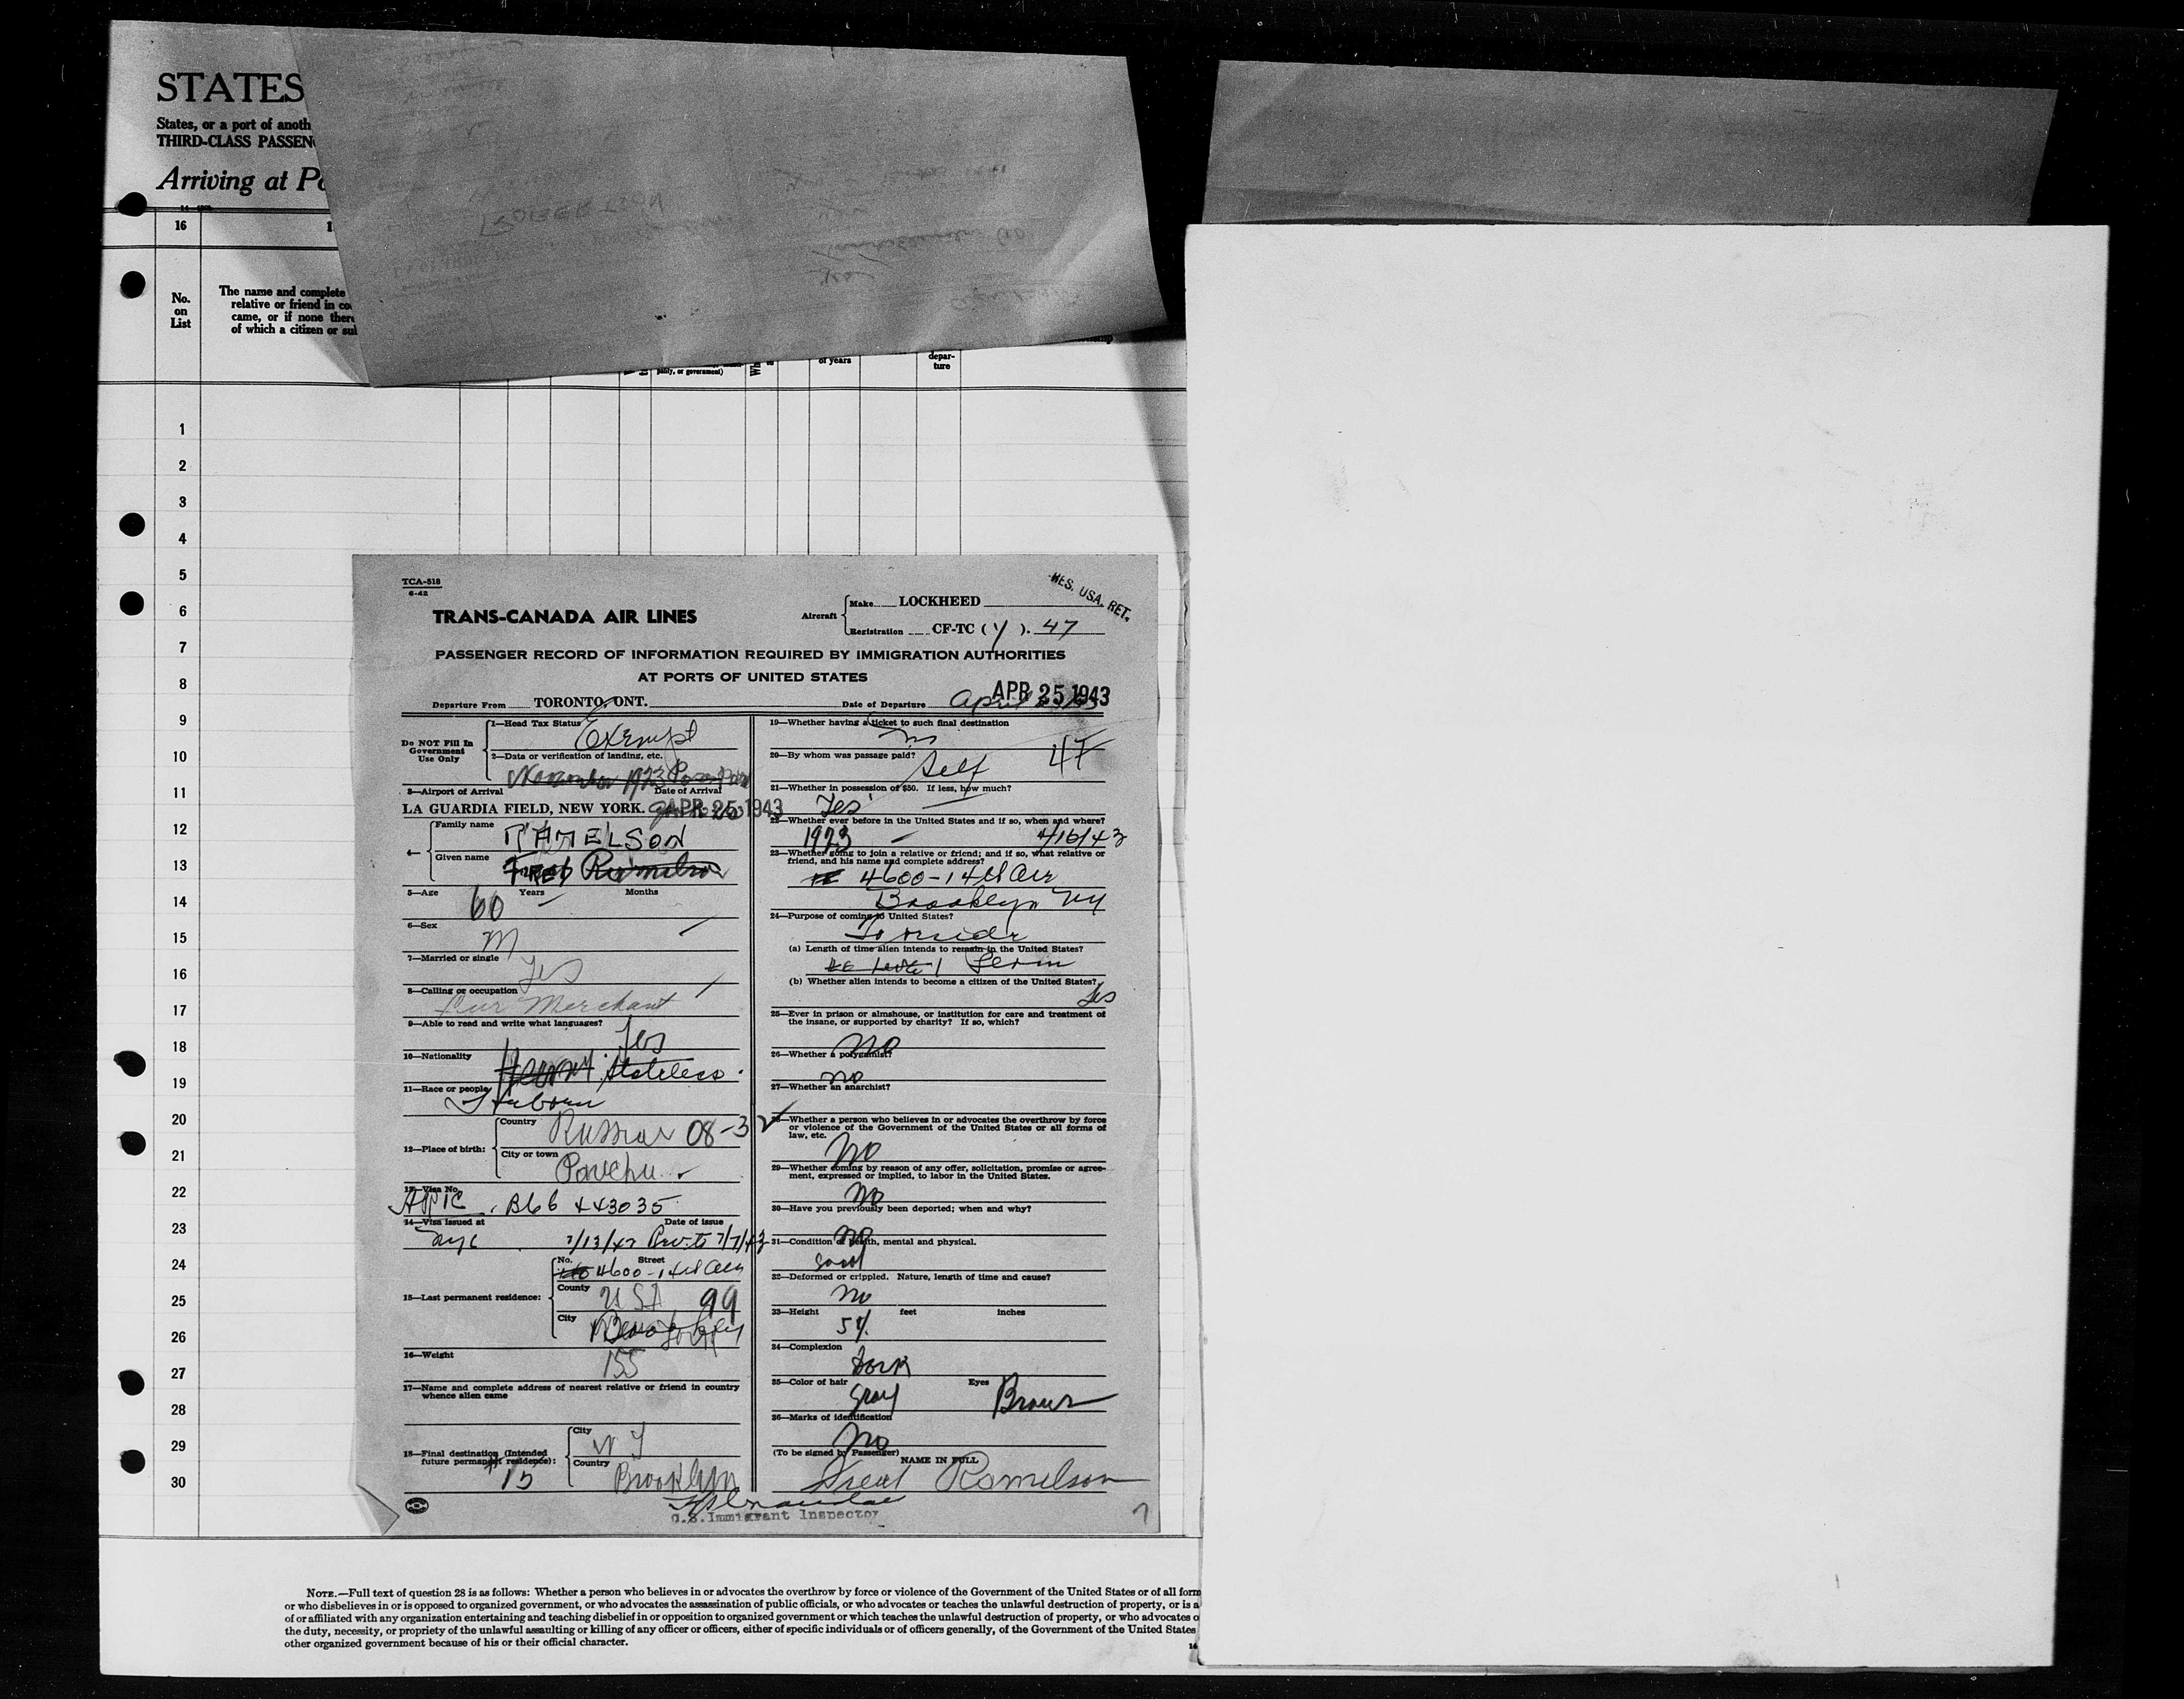 STATES
States, or a port of anoth
THIRD-CLASS PASSEN
Arriving at Po
16 1
No.
on
List
The name and complete
relative or friend in co
came, or if none there
of which a citizen or sub
pality, or government)
of years
depar-
ture
1
2
3
4
5
6
7
8
9
10
11
12
13
14
15
16
17
18
19
20
21
22
23
24
25
26
27
28
29
30
TCA-518
6-42
TRANS-CANADA AIR LINES
Aircraft
Make LOCKHEED
Registration CF-TC ( Y ). 47
RES. USA. RET.
PASSENGER RECORD OF INFORMATION REQUIRED BY IMMIGRATION AUTHORITIES
AT PORTS OF UNITED STATES
Departure From TORONTO, ONT. Date of Departure April APR 25 1943
Do NOT Fill In
Government
Use Only
1—Head Tax Status Exempt
2—Data or verification of landing, etc.
November 1923
3—Airport of Arrival Date of Arrival
LA GUARDIA FIELD, NEW YORK. APR 25 1943
4—
Family name RAMELSON
Given name FRED Ramelson
5—Age 60 Years — Months
6—Sex M
7—Married or single Yes
8—Calling or occupation Fur Merchant
9—Able to read and write what languages? Yes
10—Nationality Stateless
11—Race or people Hebrew
12—Place of birth:
Country Russia 08-3
City or town
13—Visa No.
B66 443035
14—Visa issued at Date of issue
NYC 7/13/42 7/7/43
15—Last permanent residence:
No. Street 4600-14th Ave
County USA 99
City Brooklyn
16—Weight 155
17—Name and complete address of nearest relative or friend in country
whence alien came
18—Final destination (Intended
future permanent residence):
15
City N Y
Country Brooklyn
19—Whether having a ticket to such final destination
No
20—By whom was passage paid? Self 47
21—Whether in possession of $50. If less, how much?
Yes
22—Whether ever before in the United States and if so, when and where?
1923 — 4/16/43
23—Whether going to join a relative or friend; and if so, what relative or
friend, and his name and complete address?
4600-14th Ave
Brooklyn NY
24—Purpose of coming to United States?
To reside
(a) Length of time alien intends to remain in the United States?
Perm
(b) Whether alien intends to become a citizen of the United States?
Yes
25—Ever in prison or almshouse, or institution for care and treatment of
the insane, or supported by charity? If so, which?
No
26—Whether a polygamist?
No
27—Whether an anarchist?
28—Whether a person who believes in or advocates the overthrow by force
or violence of the Government of the United States or all forms of
law, etc.
No
29—Whether coming by reason of any offer, solicitation, promise or agree-
ment, expressed or implied, to labor in the United States.
No
30—Have you previously been deported; when and why?
No
31—Condition of health, mental and physical.
Good
32—Deformed or crippled. Nature, length of time and cause?
No
33—Height feet inches
34—Complexion
Dark
35—Color of hair Eyes
Gray Brown
36—Marks of identification
No
(To be signed by Passenger) NAME IN FULL
Fred Ramelson
U.S. Immigrant Inspector
7
NOTE.—Full text of question 28 is as follows: Whether a person who believes in or advocates the overthrow by force or violence of the Government of the United States or of all form
or who disbelieves in or is opposed to organized government, or who advocates the assassination of public officials, or who advocates or teaches the unlawful destruction of property, or is a
of or affiliated with any organization entertaining and teaching disbelief in or opposition to organized government or which teaches the unlawful destruction of property, or who advocates o
the duty, necessity, or propriety of the unlawful assaulting or killing of any officer or officers, either of specific individuals or of officers generally, of the Government of the United States
other organized government because of his or their official character.